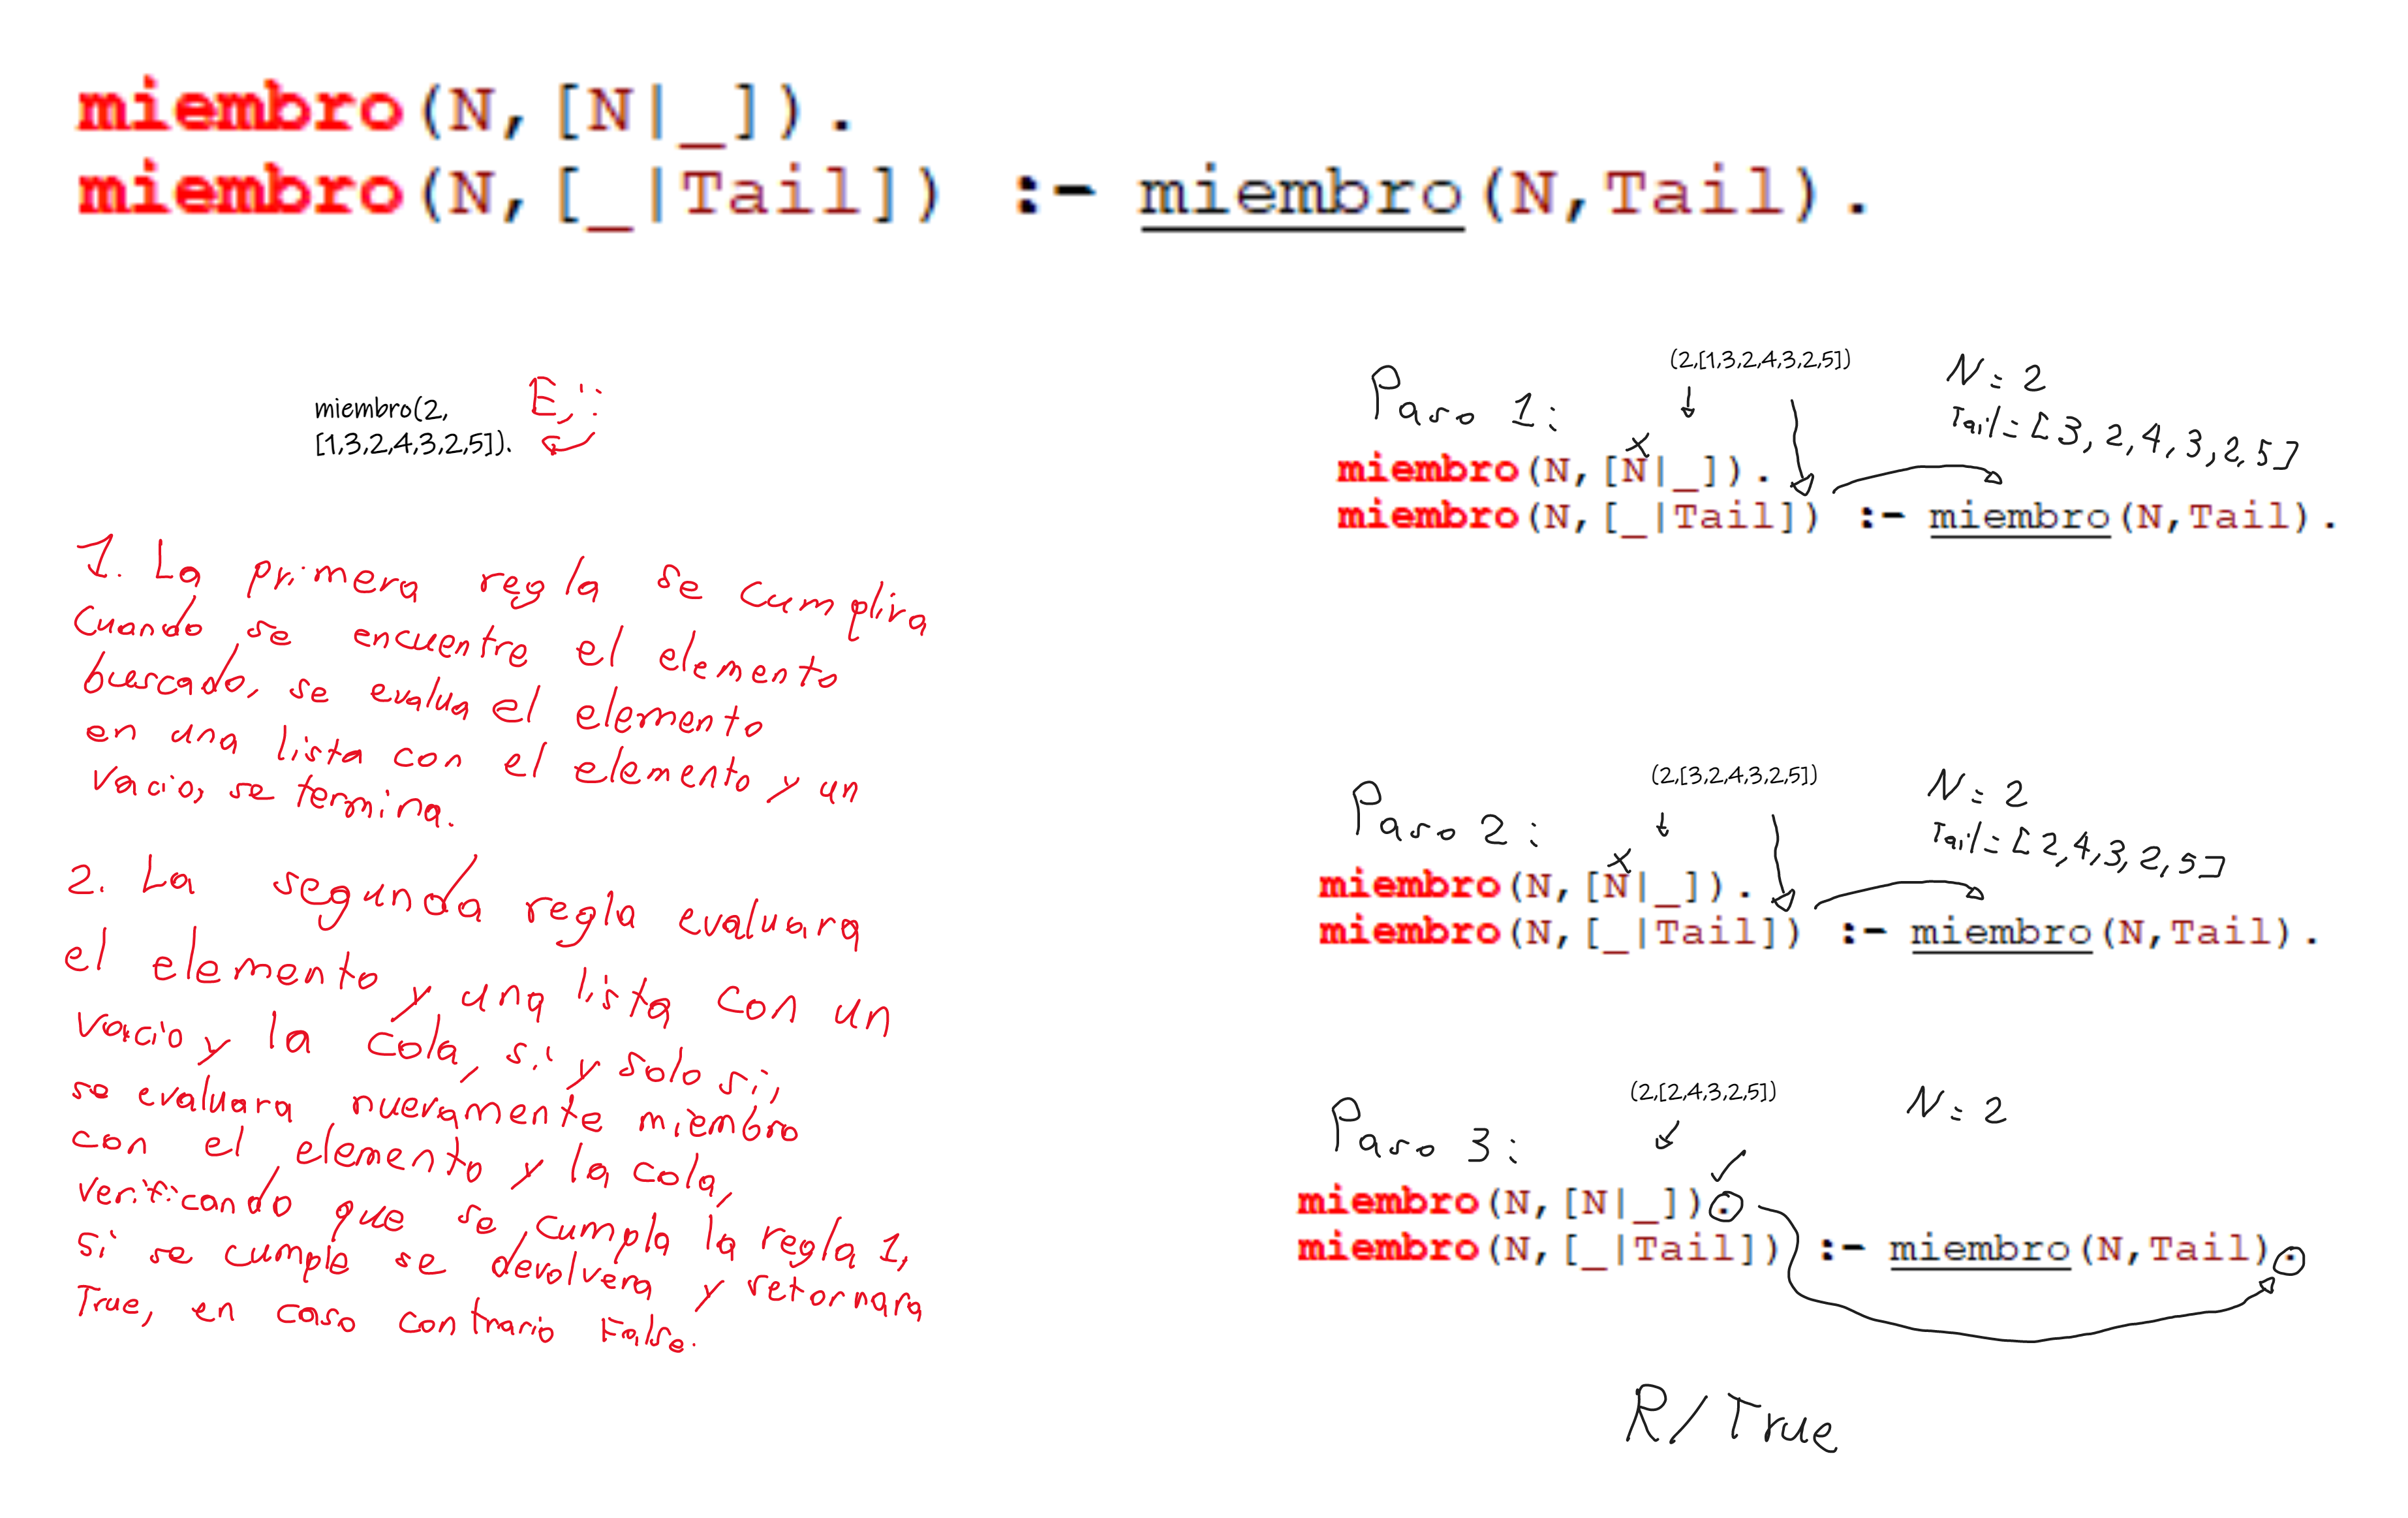 miembro(N,[N|_]).
miembro(N,[_|Tail]) :- miembro(N,Tail).
miembro(2,
[1,3,2,4,3,2,5]).
Ej:
1. La primera regla se cumplira
cuando se encuentre el elemento
buscado, se evalua el elemento
en una lista con el elemento y un
vacio, se termina.
2. La segunda regla evaluara
el elemento y una lista con un
vacio y la cola, si y solo si,
se evaluara nuevamente miembro
con el elemento y la cola,
verificando que se cumpla la regla 1,
si se cumple se devolvera y retornara
True, en caso contrario False.
Paso 1:
(2,[1,3,2,4,3,2,5])
N = 2
Tail = [3,2,4,3,2,5]
x
miembro(N,[N|_]).
miembro(N,[_|Tail]) :- miembro(N,Tail).
Paso 2:
(2,[3,2,4,3,2,5])
N = 2
Tail = [2,4,3,2,5]
x
miembro(N,[N|_]).
miembro(N,[_|Tail]) :- miembro(N,Tail).
Paso 3:
(2,[2,4,3,2,5])
N = 2
miembro(N,[N|_]).
miembro(N,[_|Tail]) :- miembro(N,Tail).
R/True